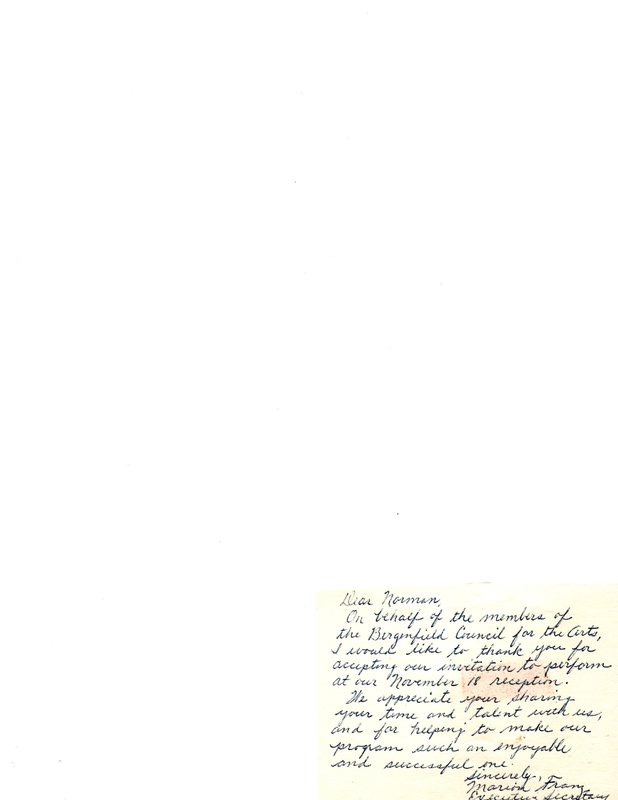 Dear Norman,
On behalf of the members of
the Bergenfield Council for the Arts,
I would like to thank you for
accepting our invitation to perform
at our November 18 reception.
We appreciate your sharing
your time and talent with us,
and for helping to make our
program such an enjoyable
and successful one.
Sincerely,
Marion Franz
Executive Secretary